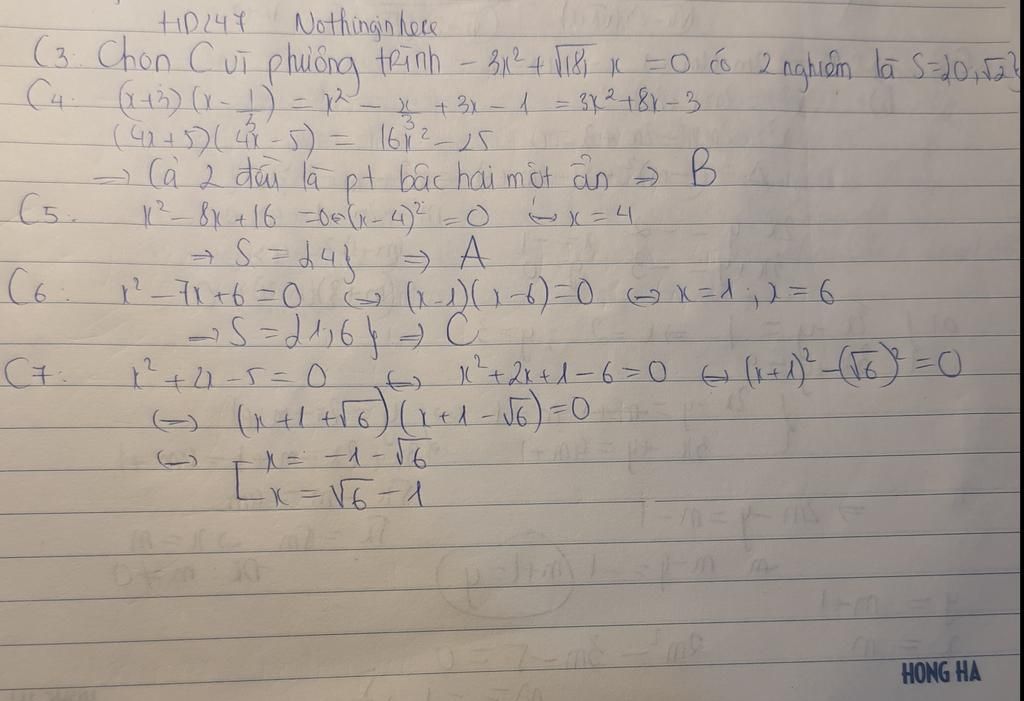 HD247 Nothinginhere
C3. Chọn C vì phương trình -3x² + √18, x = 0 có 2 nghiệm là S={0,√2}
C4. (x+3)(x - 1/3) = x² - x/3 + 3x - 1 = 3x² + 8x - 3
(4x+5)(4x-5) = 16x² - 25
=> Cả 2 đều là pt bậc hai một ẩn => B
C5. x² - 8x + 16 = 0 <=> (x-4)² = 0 <=> x = 4
=> S = {4} => A
C6: x² - 7x + 6 = 0 <=> (x-1)(x-6) = 0 <=> x = 1; x = 6
=> S = {1; 6} => C
C7: x² + 2x - 5 = 0 <=> x² + 2x + 1 - 6 = 0 <=> (x+1)² - (√6)² = 0
<=> (x + 1 + √6)(x + 1 - √6) = 0
<=> [ x = -1 - √6
x = √6 - 1
HONG HA